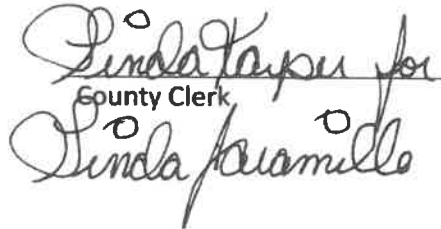 Linda Kaysen for
County Clerk
Linda Jaramillo